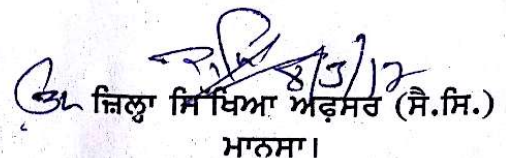 8/3/12
ਉਪ ਜ਼ਿਲ੍ਹਾ ਸਿੱਖਿਆ ਅਫ਼ਸਰ (ਸੈ.ਸਿ.)
ਮਾਨਸਾ।